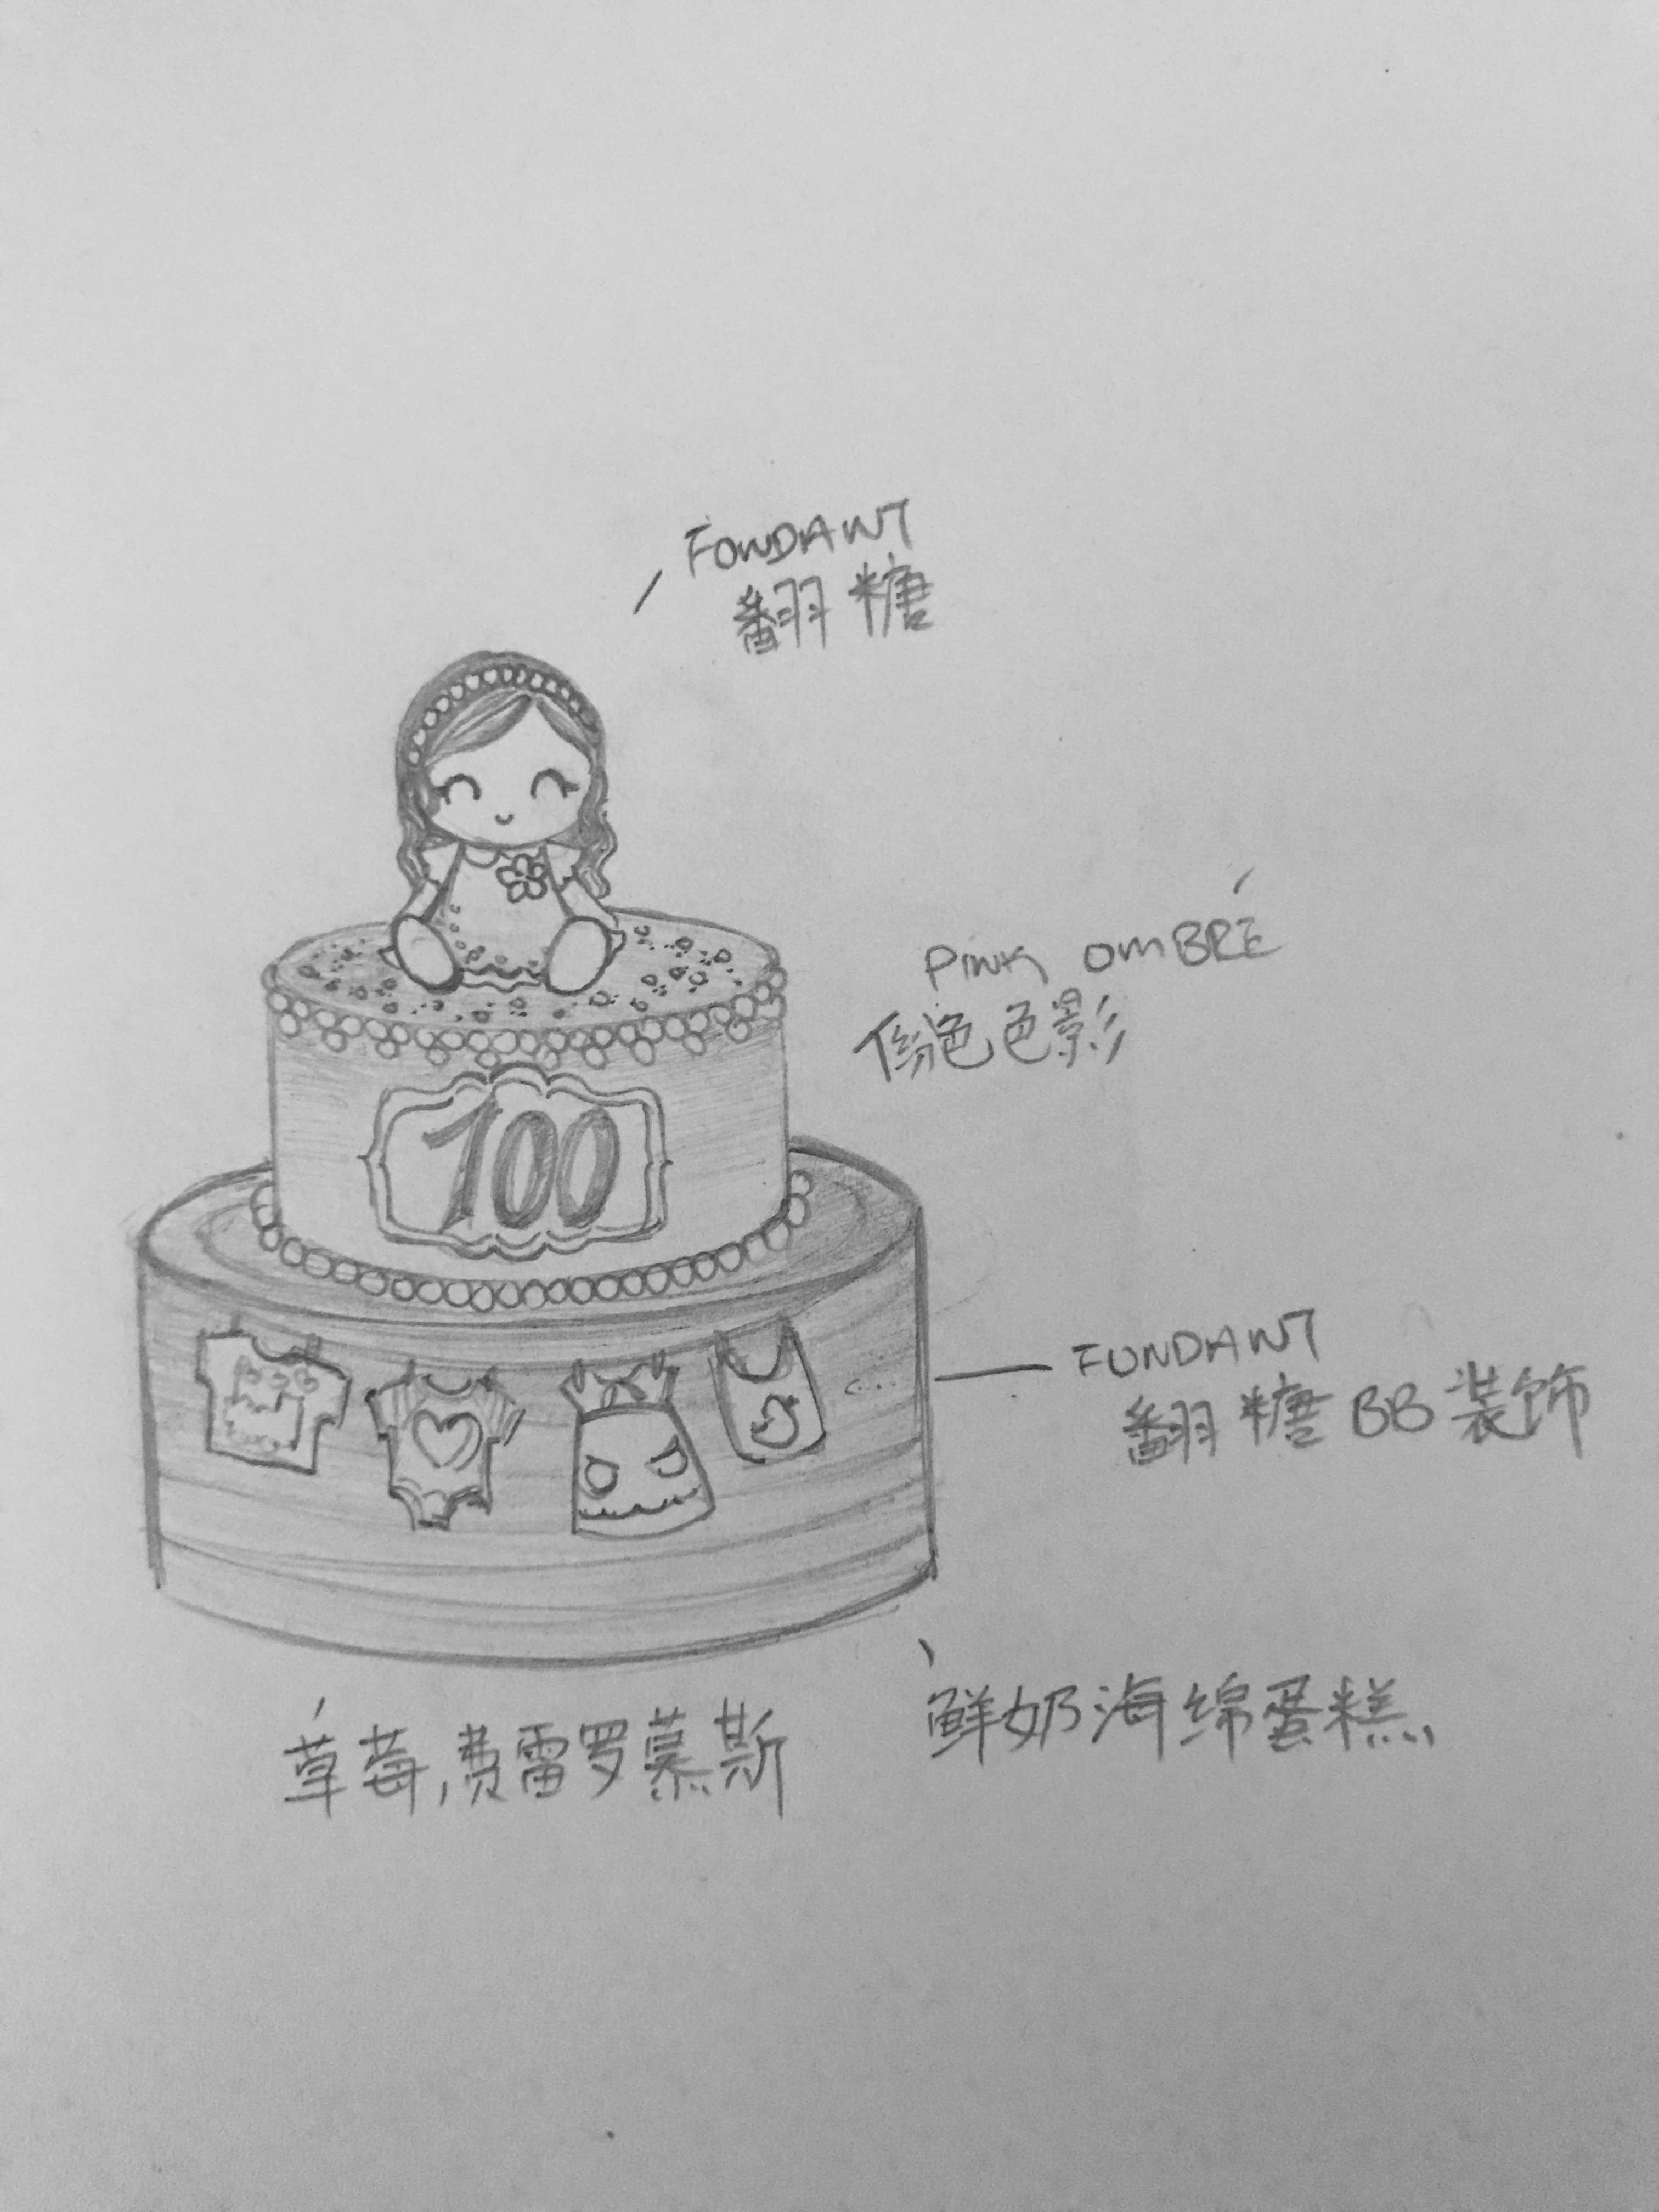 FONDANT
翻糖
PINK OMBRÉ
色色影
100
FONDANT
翻糖BB装饰
鲜奶海绵蛋糕
草莓,费雷罗慕斯